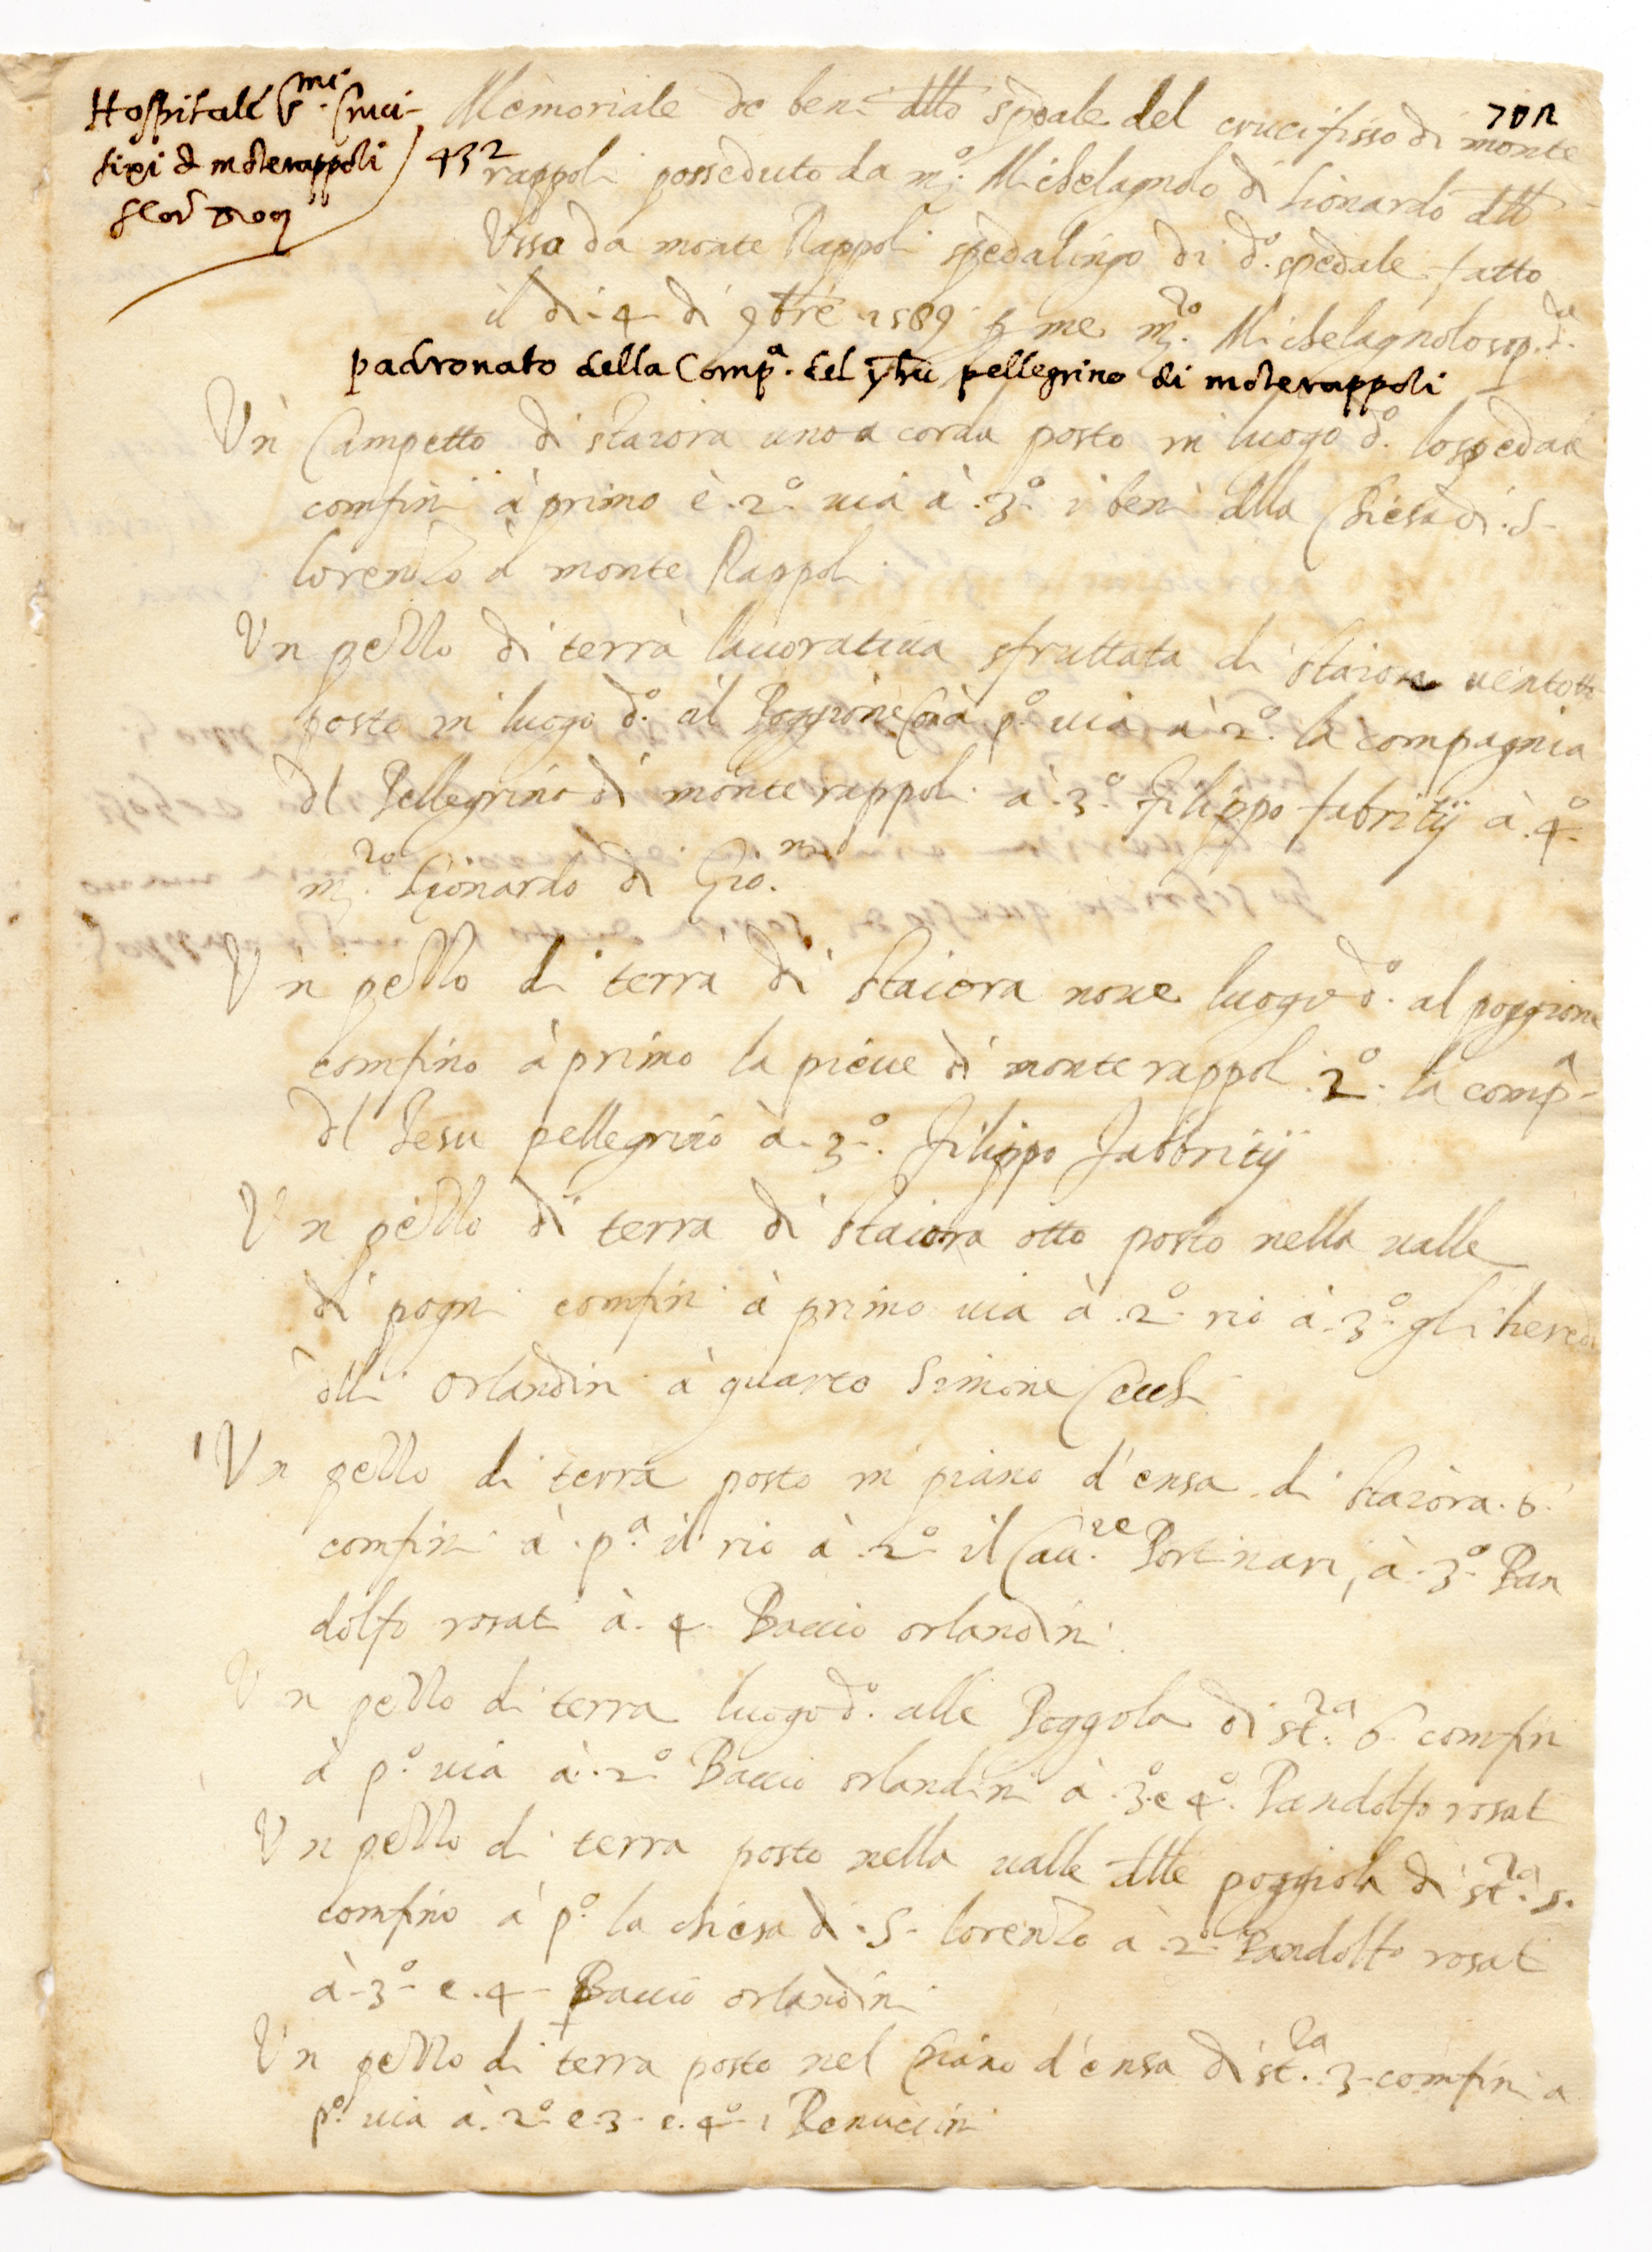 Hospitale S.mi Cruci-
fixi d mõterappoli
432
701
Memoriale de beni dllo spedale del crucifisso di monte
rappoli posseduto da m.o Michelagnolo di Lionardo dll
Ussa da monte Rappoli spedalingo di d.o spedale fatto
il di 4 di 9bre 1589 p me m.ro Michelagnolo sop.a d.
padronato della Comp.a del yhu pellegrino di mõterappoli
Un Campetto di staiora uno a corda posto in luogo d.o lospedale
comfini à primo è 2.o uia à 3.o i beni dlla Chiesa di S
lorenzo à monte Rappoli
Un pezzo di terra lauoratiua sfruttata di staiora uentotto
posto in luogo d.o al Poggione à p.o uia à 2.o la compagnia
dl Pellegrino di monterappoli à 3.o filippo fabritij à 4.o
m.ro Lionardo di Gio.ni
Un pezzo di terra di staiora noue luogo d.o al poggione
comfino à primo la pieue di monterappoli 2.o la comp.a
dl Jesu pellegrino à 3.o filippo fabbritij
Un pezzo di terra di staiora otto posto nella ualle
di pogni comfini à primo uia à 2.o rio à 3.o gli heredi
dlli Orlandini à quarto Simone Cecchi
Un pezzo di terra posto in piano d'ensa di staiora 6
comfini à p.a il rio à 2.o il Cau.re Portinari, à 3.o Pan
dolfo rosati à 4 Baccio orlandini
Un pezzo di terra luogo d.o alle Poggola di st.ra 6 comfini
à p.o uia à 2.o Baccio orlandini à 3.o e 4.o Pandolfo rosati
Un pezzo di terra posto nella ualle dlle poggiola di st.ra 5.
comfino à p.o la chiesa di S lorenzo à 2.o Pandolfo rosati
à 3.o e 4 Baccio orlandini
Un pezzo di terra posto nel piano d'ensa di st.ra 3 comfini a
p.o uia à 2.o e 3 e 4.o i Renuccini